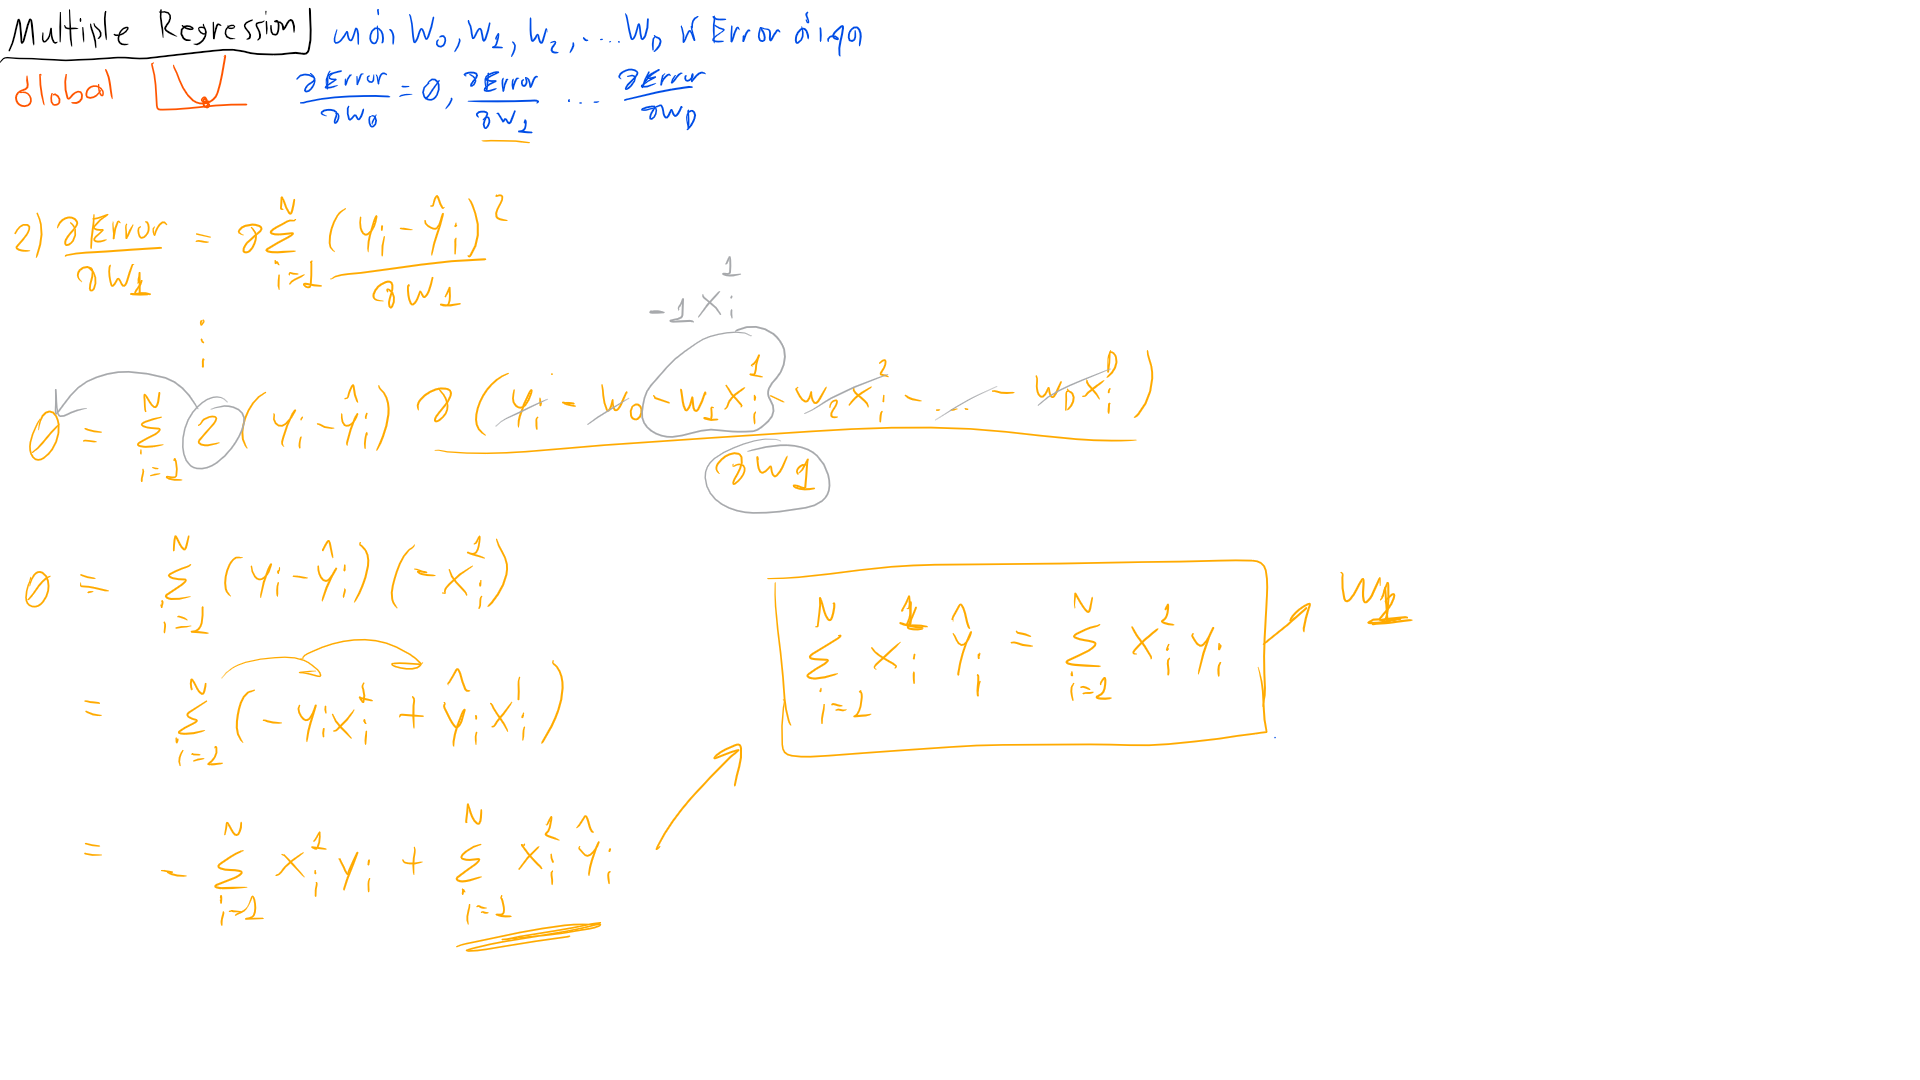 Multiple Regression หาค่า W₀, W₁, W₂, .... W_D ที่ Error ต่ำสุด
Global ∂Error/∂W₀ = 0, ∂Error/∂W₁ ... ∂Error/∂W_D
2) ∂Error/∂W₁ = ∂ Σ_{i=1}^{N} (y_i - ŷ_i)² / ∂W₁
⋮
-1x_i^1
0 = Σ_{i=1}^{N} 2 (y_i - ŷ_i) ∂(y_i - w₀ - w₁x_i^1 - w₂x_i^2 - ... - w_D x_i^D) / ∂W₁
0 = Σ_{i=1}^{N} (y_i - ŷ_i)(-x_i^1)
= Σ_{i=1}^{N} (-y_i x_i^1 + ŷ_i x_i^1)
= - Σ_{i=1}^{N} x_i^1 y_i + Σ_{i=1}^{N} x_i^1 ŷ_i
Σ_{i=1}^{N} x_i^1 ŷ_i = Σ_{i=1}^{N} x_i^1 y_i → W₁